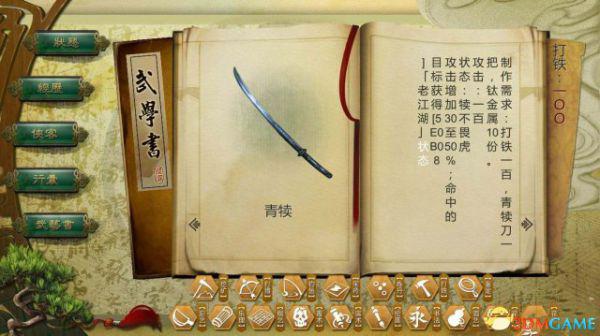 狀態
經歷
俠客
行囊
武藝書
武學書
青犊
打铁：一〇〇
制作需求：打铁一百，青犊刀一
把，钛金属10份。
攻击：一百
状态：犊不畏虎
攻击增加30至50%；命中的
目标获得[5E0B08
]「老江湖」状态
3DMGAME